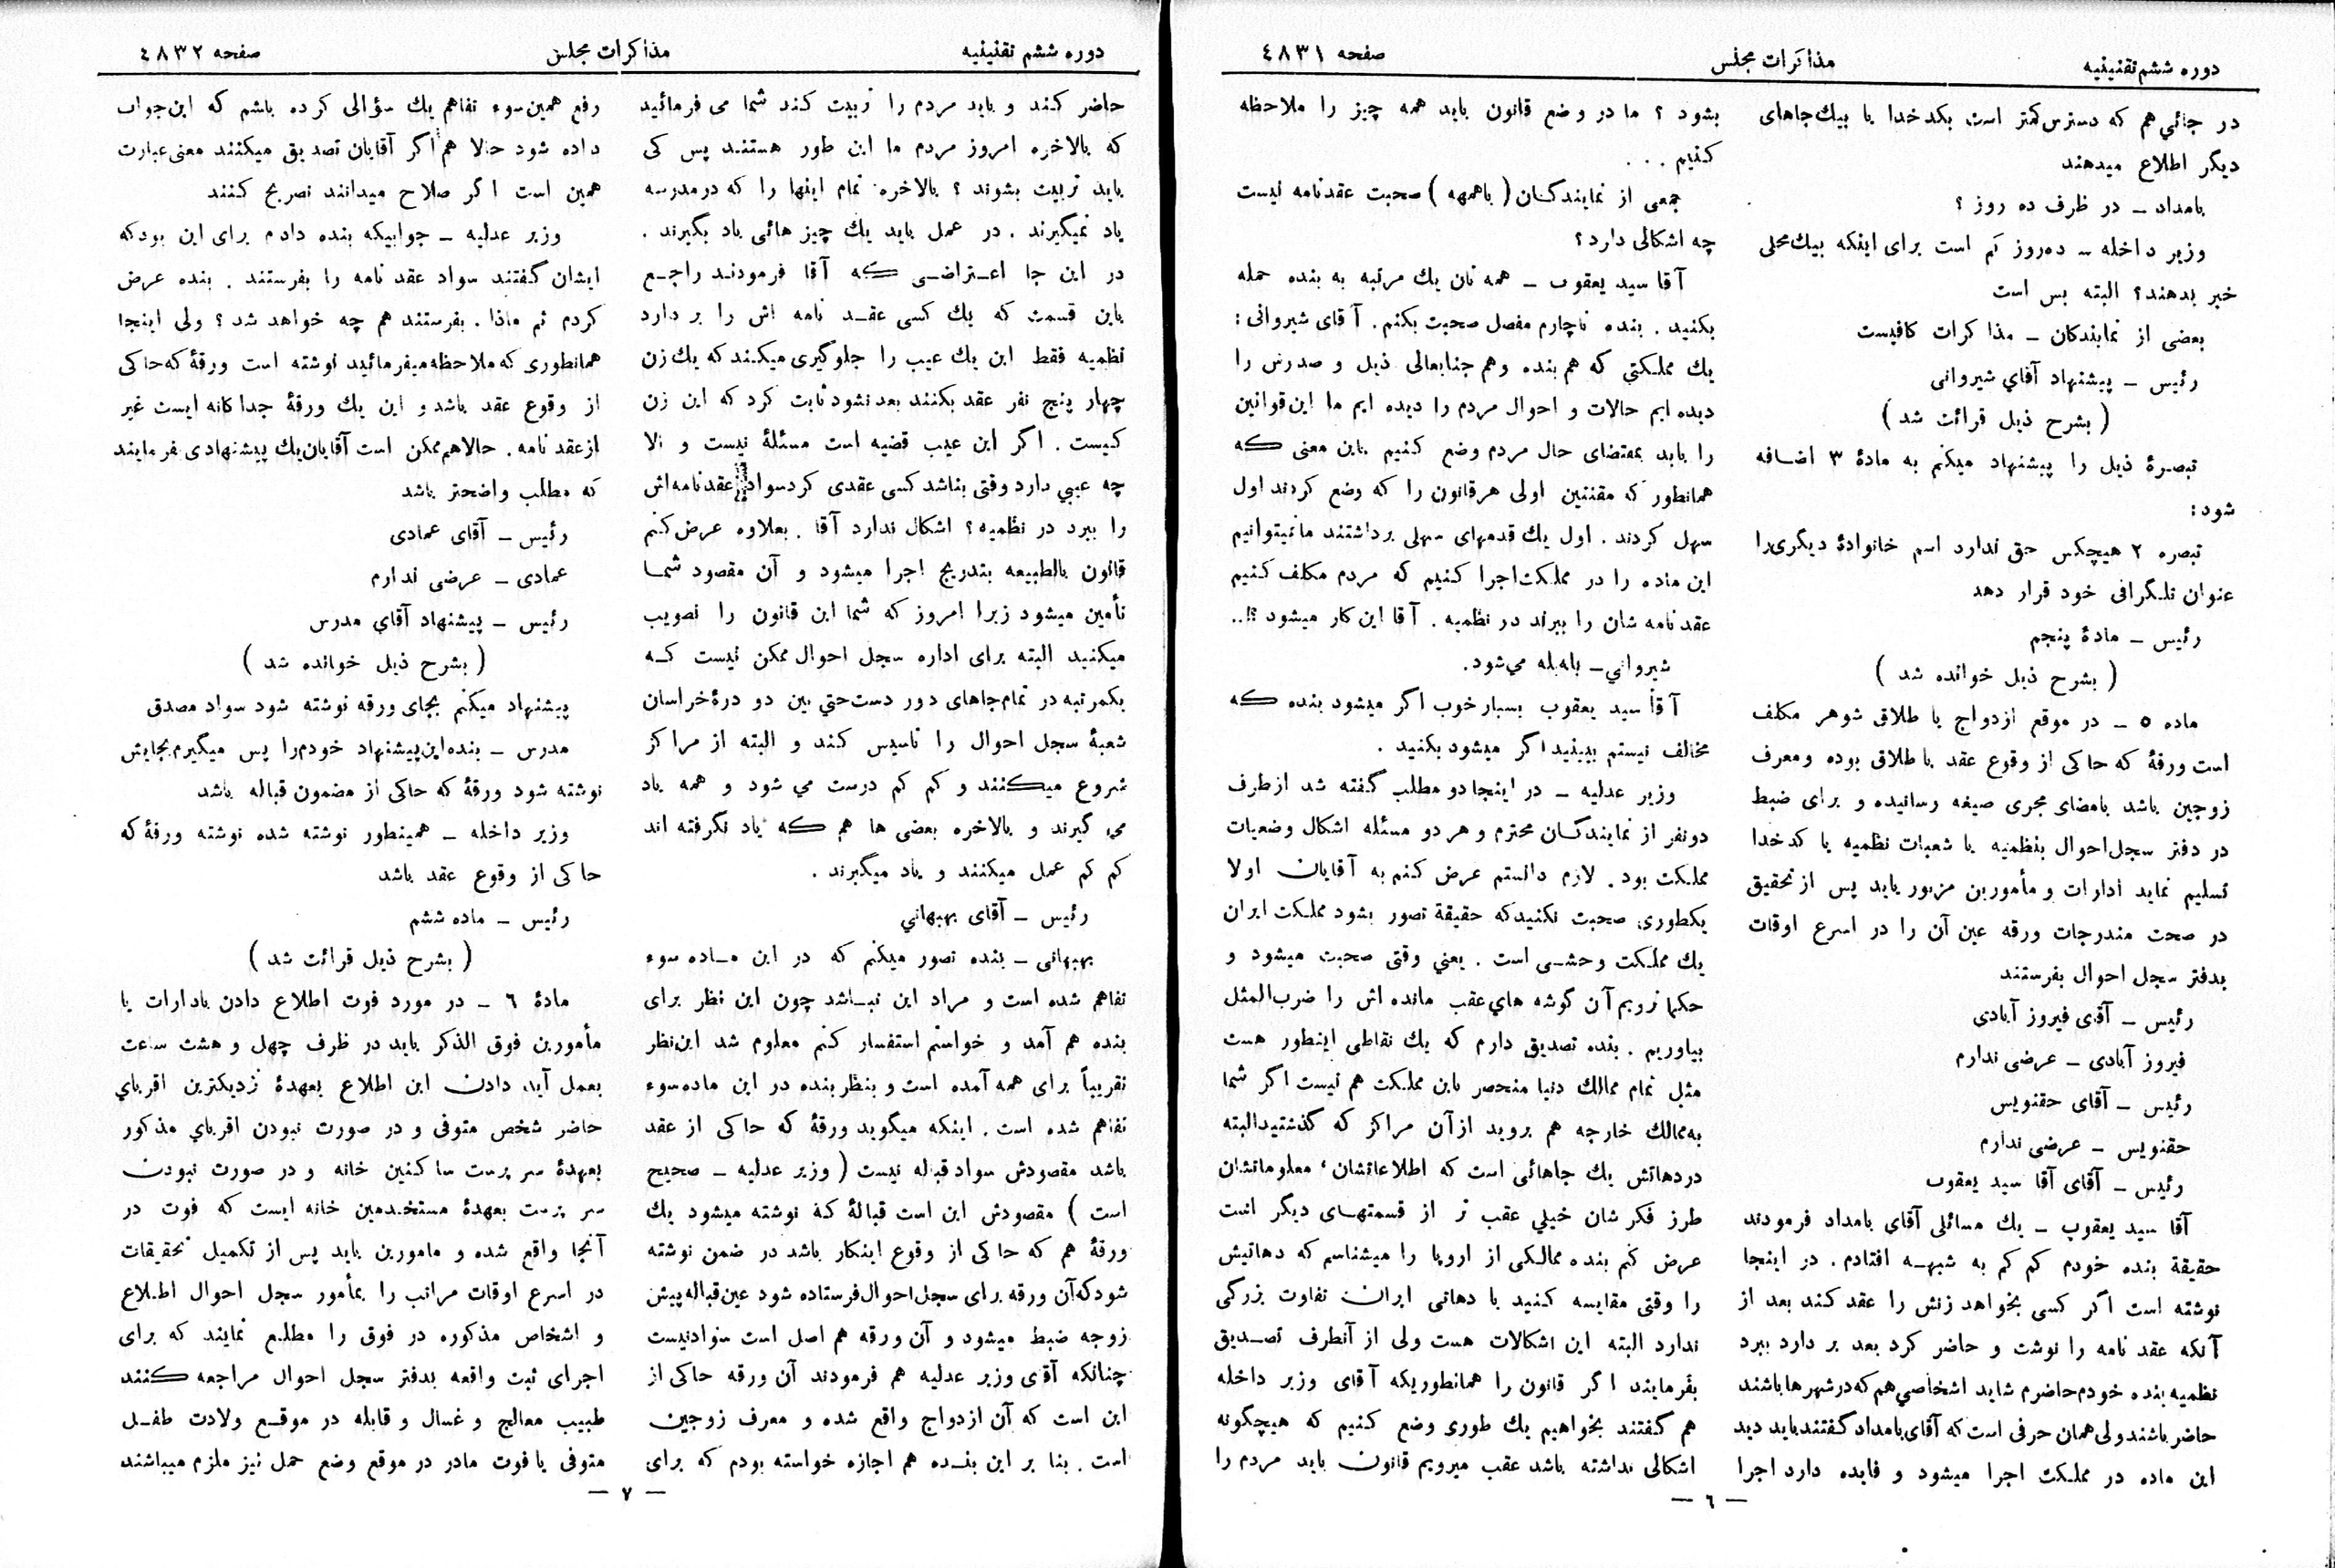 دوره ششم تقنینیه
مذاکرات مجلس
صفحه ٤٨٣١
در جائي هم که دسترس کمتر است بکدخدا یا بیك جاهای
دیگر اطلاع میدهند
بامداد ـ در ظرف ده روز ؟
وزیر داخله ـ ده‌روز کم است برای اینکه بیك محلی
خبر بدهند؟ البته بس است
بعضی از نمایندکان ـ مذاکرات کافیست
رئیس ـ پیشنهاد آقاي شیروانی
( بشرح ذیل قرائت شد )
تبصرهٔ ذیل را پیشنهاد میکنم به مادهٔ ۳ اضافه
شود :
تبصره ۲ هیچکس حق ندارد اسم خانوادهٔ دیگری را
عنوان تلگرافی خود قرار دهد
رئیس ـ مادهٔ پنجم
( بشرح ذیل خوانده شد )
ماده ٥ ـ در موقع ازدواج یا طلاق شوهر مکلف
است ورقهٔ که حاکی از وقوع عقد یا طلاق بوده و معرف
زوجین باشد بامضای مجری صیغه رسانیده و برای ضبط
در دفتر سجل احوال بنظمیه یا شعبات نظمیه یا کدخدا
تسلیم نماید ادارات و مأمورین مزبور باید پس از تحقیق
در صحت مندرجات ورقه عین آن را در اسرع اوقات
بدفتر سجل احوال بفرستند
رئیس ـ آقای فیروز آبادی
فیروز آبادی ـ عرضی ندارم
رئیس ـ آقای حقنویس
حقنویس ـ عرضی ندارم
رئیس ـ آقای آقا سید یعقوب
آقا سید یعقوب ـ یك مسائلی آقای بامداد فرمودند
حقیقة بنده خودم کم کم به شبهه افتادم . در اینجا
نوشته است اگر کسی بخواهد زنش را عقد کند بعد از
آنکه عقد نامه را نوشت و حاضر کرد بعد بر دارد ببرد
نظمیه بنده خودم حاضرم شاید اشخاصي هم که در شهرها باشند
حاضر باشند ولی همان حرفی است که آقای بامداد گفتند باید دید
این ماده در مملکت اجرا میشود و فایده دارد اجرا
بشود ؟ ما در وضع قانون باید همه چیز را ملاحظه
کنیم . . .
جمعی از نمایندکان ( باهمهمه ) صحبت عقدنامه نیست
چه اشکالی دارد ؟
آقا سید یعقوب ـ همه تان یك مرتبه به بنده حمله
بکنید . بنده ناچارم مفصل صحبت بکنم . آقای شیروانی :
یك مملکتي که هم بنده وهم جنابعالی ذیل و صدرش را
دیده ایم حالات و احوال مردم را دیده ایم ما این قوانین
را باید بمقتضای حال مردم وضع کنیم باین معنی که
همانطور که مقننین اولی هر قانون را که وضع کردند اول
سهل کردند . اول یك قدمهای سهلی برداشتند ما نمیتوانیم
این ماده را در مملکت اجرا کنیم که مردم مکلف کنیم
عقد نامه شان را ببرند در نظمیه . آقا این کار میشود ؟!..
شیروانی ـ بله بله مي‌شود .
آقا سید یعقوب بسیار خوب اگر میشود بنده که
مخالف نیستم ببینید اگر میشود بکنید .
وزیر عدلیه ـ در اینجا دو مطلب گفته شد از طرف
دونفر از نمایندکان محترم و هر دو مسئله اشکال وضعیات
مملکت بود . لازم دانستم عرض کنم به آقایان اولا
یکطوری صحبت نکنید که حقیقة تصور بشود مملکت ایران
یك مملکت وحشی است . یعني وقتی صحبت میشود و
حکما نرویم آن گوشه هاي عقب مانده اش را ضرب المثل
بیاوریم . بنده تصدیق دارم که یك نقاطی اینطور هست
مثل تمام ممالك دنیا منحصر باین مملکت هم نیست اگر شما
به ممالك خارجه هم بروید از آن مراکز که گذشتید البته
در دهاتش یك جاهائی است که اطلاعاتشان ، معلوماتشان
طرز فکر شان خیلي عقب تر از قسمتهای دیگر است
عرض کنم بنده ممالکی از اروپا را میشناسم که دهاتیش
را وقتی مقایسه کنید با دهاتی ایران تفاوت بزرگی
ندارد البته این اشکالات هست ولی از آنطرف تصدیق
بفرمایند اگر قانون را همانطوریکه آقای وزیر داخله
هم گفتند بخواهیم یك طوری وضع کنیم که هیچگونه
اشکالی نداشته باشد عقب میرویم قانون باید مردم را
ـ ٦ ـ
دوره ششم تقنینیه
مذاکرات مجلس
صفحه ٤٨٣٢
حاضر کند و باید مردم را تربیت کند شما می فرمائید
که بالاخره امروز مردم ما این طور هستند پس کی
باید تربیت بشوند ؟ بالاخره تمام اینها را که در مدرسه
یاد نمیگیرند . در عمل باید یك چیز هائی یاد بگیرند .
در این جا اعتراضی که آقا فرمودند راجع
باین قسمت که یك کسی عقد نامه اش را بر دارد
نظمیه فقط این یك عیب را جلوگیری میکند که یك زن
چهار پنج نفر عقد بکنند بعد نشود ثابت کرد که این زن
کیست . اگر این عیب قضیه است مسئلهٔ نیست و الا
چه عیبي دارد وقتی بناشد کسی عقدی کرد سواد عقدنامه اش
را ببرد در نظمیه ؟ اشکال ندارد آقا . بعلاوه عرض کنم
قانون بالطبیعه بتدریج اجرا میشود و آن مقصود شما
تأمین میشود زیرا امروز که شما این قانون را تصویب
میکنید البته برای اداره سجل احوال ممکن نیست که
یکمرتبه در تمام جاهای دور دست حتي بین دو درهٔ خراسان
شعبهٔ سجل احوال را تاسیس کند و البته از مراکز
شروع میکنند و کم کم درست مي شود و همه یاد
مي گیرند و بالاخره بعضی ها هم که یاد نگرفته اند
کم کم عمل میکنند و یاد میگیرند .
رئیس ـ آقای بهبهاني
بهبهانی ـ بنده تصور میکنم که در این ماده سوء
تفاهم شده است و مراد این نباشد چون این نظر برای
بنده هم آمد و خواستم استفسار کنم معلوم شد این نظر
تقریباً برای همه آمده است و بنظر بنده در این ماده سوء
تفاهم شده است . اینکه میگوید ورقهٔ که حاکی از عقد
باشد مقصودش سواد قباله نیست ( وزیر عدلیه ـ صحیح
است ) مقصودش این است قبالهٔ که نوشته میشود یك
ورقهٔ هم که حاکی از وقوع اینکار باشد در ضمن نوشته
شود که آن ورقه برای سجل احوال فرستاده شود عین قباله پیش
زوجه ضبط میشود و آن ورقه هم اصل است سواد نیست
چنانکه آقای وزیر عدلیه هم فرمودند آن ورقه حاکی از
این است که آن ازدواج واقع شده و معرف زوجین
است . بنا بر این بنده هم اجازه خواسته بودم که برای
رفع همین سوء تفاهم یك سؤالی کرده باشم که این جواب
داده شود حالا هم اگر آقایان تصدیق میکنند معنی عبارت
همین است اگر صلاح میدانند تصریح کنند
وزیر عدلیه ـ جوابیکه بنده دادم برای این بود که
ایشان گفتند سواد عقد نامه را بفرستند . بنده عرض
کردم ثم ماذا . بفرستند هم چه خواهد شد ؟ ولی اینجا
همانطوری که ملاحظه میفرمائید نوشته است ورقهٔ که حاکی
از وقوع عقد باشد و این یك ورقهٔ جداکانه ایست غیر
از عقد نامه . حالا هم ممکن است آقایان یك پیشنهادی فرمایند
که مطلب واضحتر باشد
رئیس ـ آقای عمادی
عمادی ـ عرضی ندارم
رئیس ـ پیشنهاد آقاي مدرس
( بشرح ذیل خوانده شد )
پیشنهاد میکنم بجای ورقه نوشته شود سواد مصدق
مدرس ـ بنده این پیشنهاد خودم را پس میگیرم بجایش
نوشته شود ورقهٔ که حاکی از مضمون قباله باشد
وزیر داخله ـ همینطور نوشته شده نوشته ورقهٔ که
حاکی از وقوع عقد باشد
رئیس ـ ماده ششم
( بشرح ذیل قرائت شد )
مادهٔ ٦ ـ در مورد فوت اطلاع دادن بادارات یا
مأمورین فوق الذکر باید در ظرف چهل و هشت ساعت
بعمل آید دادن این اطلاع بعهدهٔ نزدیکترین اقرباي
حاضر شخص متوفی و در صورت نبودن اقرباي مذکور
بعهدهٔ سر پرست ساکنین خانه و در صورت نبودن
سر پرست بعهدهٔ مستخدمین خانه ایست که فوت در
آنجا واقع شده و مامورین باید پس از تکمیل تحقیقات
در اسرع اوقات مراتب را بمأمور سجل احوال اطلاع
و اشخاص مذکوره در فوق را مطلع نمایند که برای
اجرای ثبت واقعه بدفتر سجل احوال مراجعه کنند
طبیب معالج و غسال و قابله در موقع ولادت طفل
متوفی یا فوت مادر در موقع وضع حمل نیز ملزم میباشند
ـ ۷ ـ